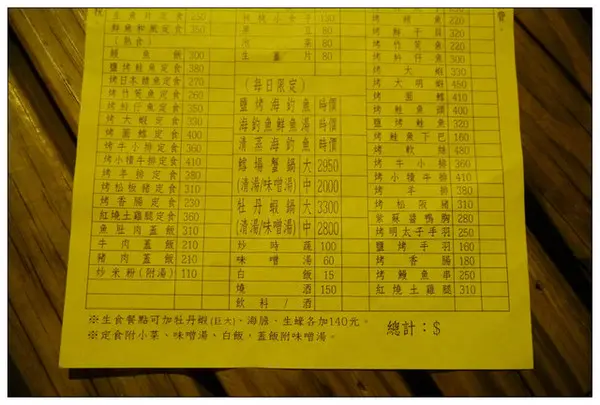 生魚片定食 350
鮮魚和風定食 350
(熟食)
鰻魚飯 300
鹽烤鮭魚定食 380
烤日本鯖魚定食 270
烤竹筴魚定食 260
烤魽仔魚定食 350
烤大蝦定食 330
烤圓鱈定食 400
烤牛小排定食 360
烤小犢牛排定食 410
烤羊排定食 380
烤松板豬定食 310
烤香腸定食 230
紅燒土雞腿定食 360
魚肚肉蓋飯 210
牛肉蓋飯 210
豬肉蓋飯 210
炒米粉(附湯) 110
120
80
80
生薑片 80
(每日限定)
鹽烤海釣魚 時價
海釣魚鮮魚湯 時價
清蒸海釣魚 時價
鱈場蟹鍋 大 2950
(清湯/味噌湯) 中 2000
牡丹蝦鍋 大 3300
(清湯/味噌湯) 中 2800
炒時蔬 100
味噌湯 60
白飯 15
燒酒 150
飲料/酒
烤鯖魚 220
烤鮮干貝 320
烤竹筴魚 220
烤魽仔魚 300
烤大蝦 330
烤大明蝦 450
烤圓鱈 410
烤鮭魚頭 400
鹽烤鮭魚 320
烤鮭魚下巴 160
烤軟絲 480
烤牛小排 360
烤小犢牛排 410
烤羊排 380
烤松阪豬 310
紫蘇醬鴨胸 280
烤明太子手羽 250
鹽烤手羽 160
烤香腸 180
烤鰻魚串 250
紅燒土雞腿 310
※生食餐點可加牡丹蝦(巨大)、海膽、生蠔各加140元。
※定食附小菜、味噌湯、白飯,蓋飯附味噌湯。
總計：$